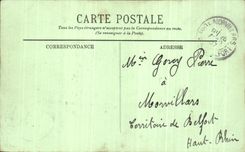 CARTE POSTALE
Tous les Pays étrangers n'acceptent pas la Correspondance au recto.
(Se renseigner à la Poste).
CORRESPONDANCE
ADRESSE
Pierre
à
Morvillars
Territoire de Belfort
Haut-Rhin